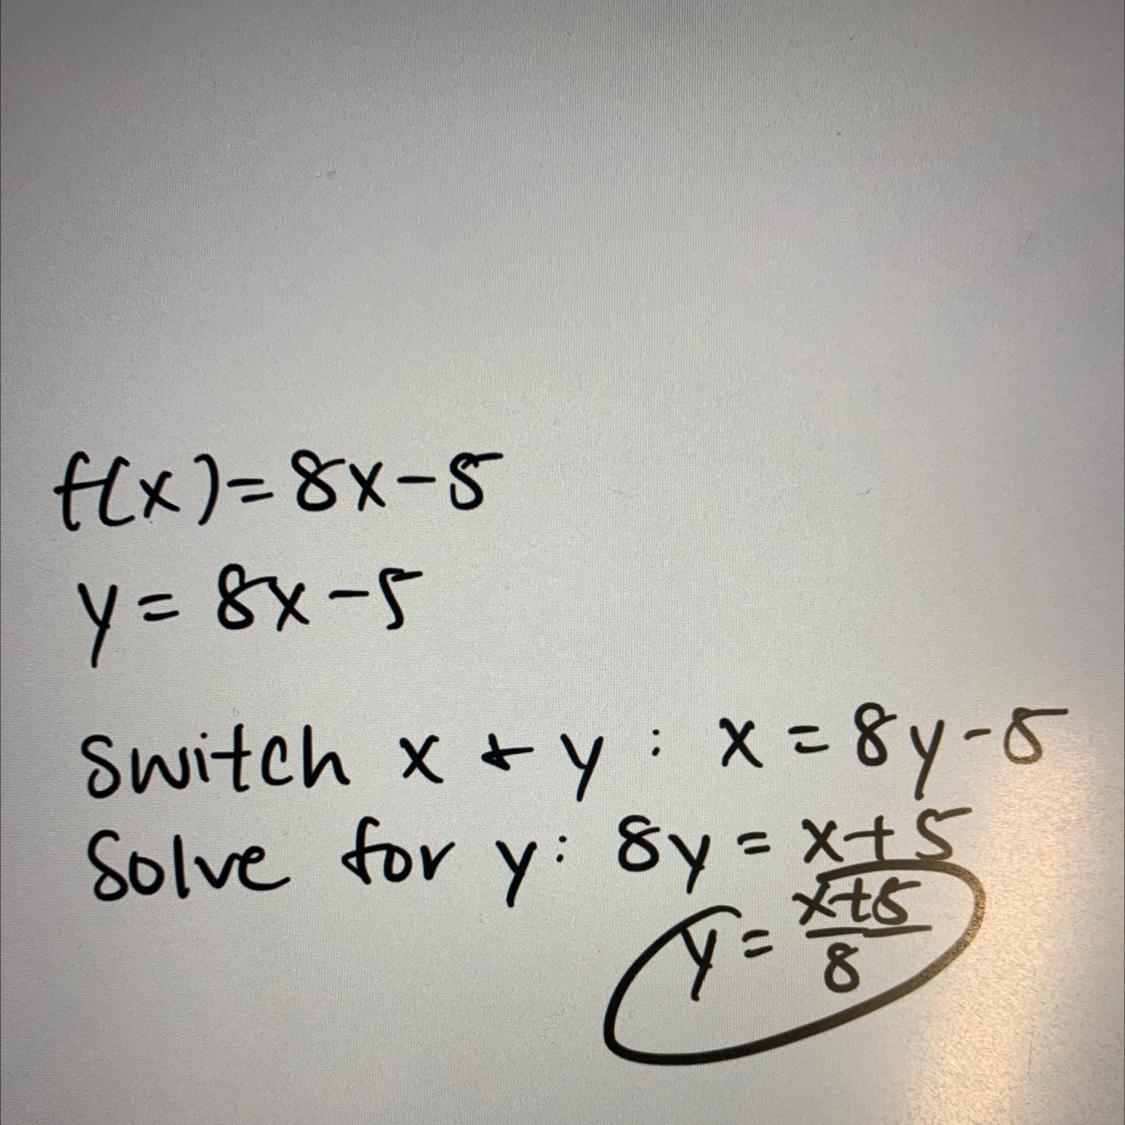 f(x)=8x-5
y=8x-5
Switch x + y: x=8y-5
Solve for y: 8y=x+5
y=x+5/8